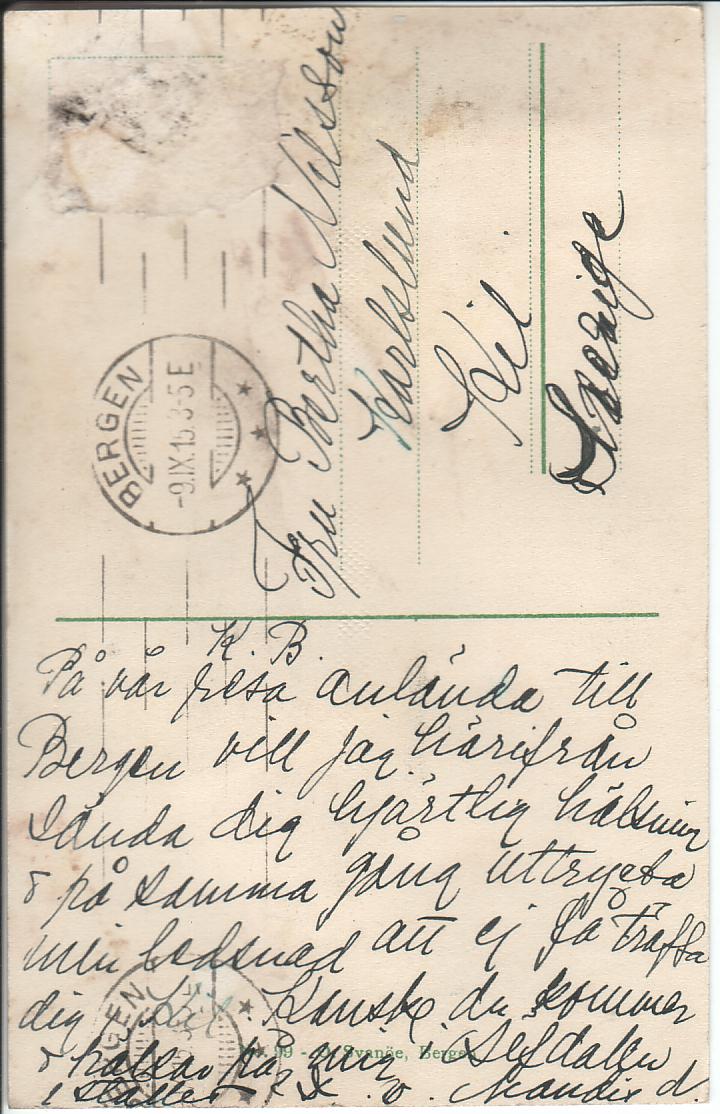 BERGEN
-9.IX.15.3-5E
Fru Bertha Nilsson
Karlslund
Kil.
Sverige
K. B.
På vår resa anlända till
Bergen vill jag härifrån
sända dig hjärtlig hälsning
& på samma gång uttrycka
min ledsnad att ej få träffa
dig i Kil. Kanske du kommer
& hälsar på mig i Selfdalen
i stället
Svanöe, Bergen
BERGEN